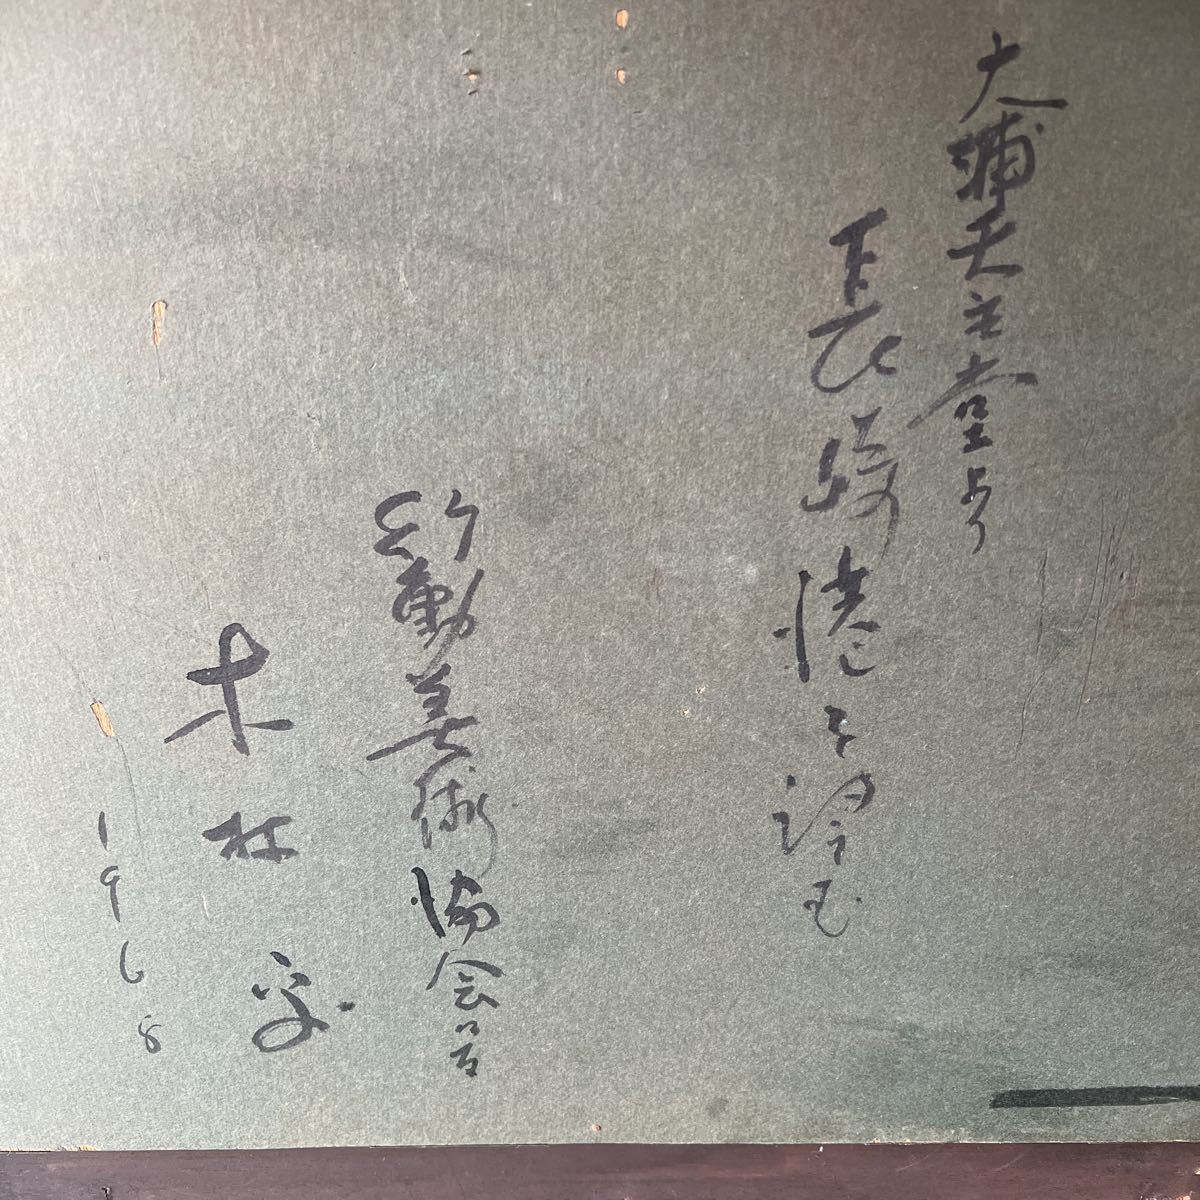 大浦天主堂より
長崎港を望む
行動美術協会員
木村
1968